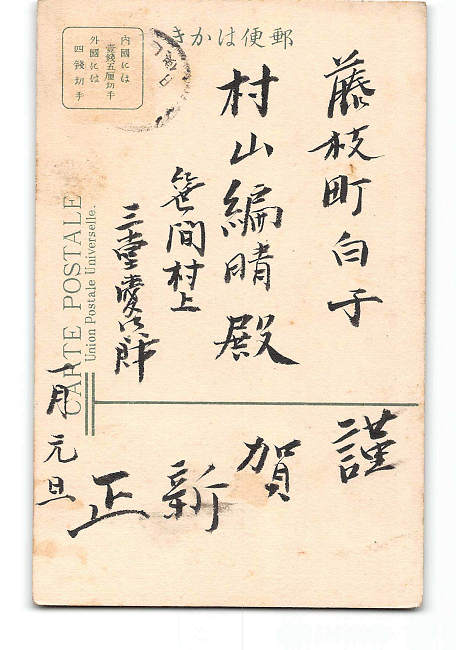 郵便はかき
内國には
壹錢五厘切手
外國には
四錢切手
CARTE POSTALE
Union Postale Universelle.
藤枝町白子
村山編晴殿
笹間村上
謹賀新正
一月元旦